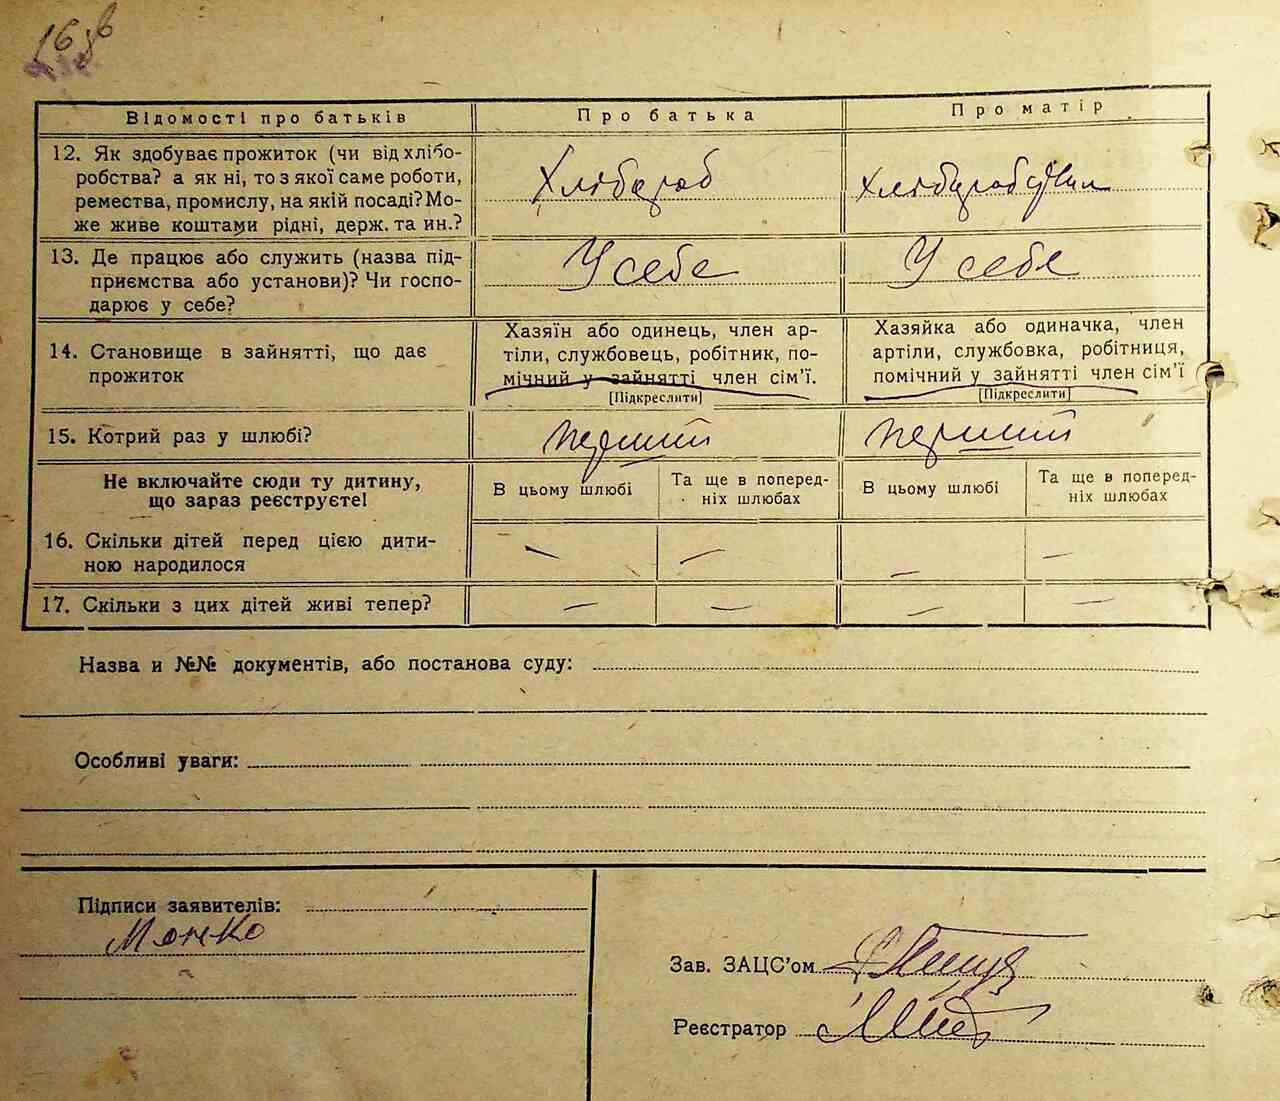 Відомості про батьків Про батька Про матір
12. Як здобуває прожиток (чи від хлібо-
робства? а як ні, то з якої саме роботи,
ремества, промислу, на якій посаді? Мо-
же живе коштами рідні, держ. та ин.?
Хлібороб
13. Де працює або служить (назва під-
приємства або установи)? Чи госпо-
дарює у себе?
У себе У себе
14. Становище в зайнятті, що дає
прожиток
Хазяїн або одинець, член ар-
тіли, службовець, робітник, по-
мічний у зайнятті член сім'ї.
[Підкреслити]
Хазяйка або одиначка, член
артіли, службовка, робітниця,
помічний у зайнятті член сім'ї
[Підкреслити]
15. Котрий раз у шлюбі? перший перший
Не включайте сюди ту дитину,
що зараз реєструєте!
В цьому шлюбі
Та ще в поперед-
ніх шлюбах
В цьому шлюбі
Та ще в поперед-
ніх шлюбах
16. Скільки дітей перед цією дити-
ною народилося
— — — —
17. Скільки з цих дітей живі тепер? — — — —
Назва и №№ документів, або постанова суду:
Особливі уваги:
Підписи заявителів:
Зав. ЗАЦС'ом
Реєстратор